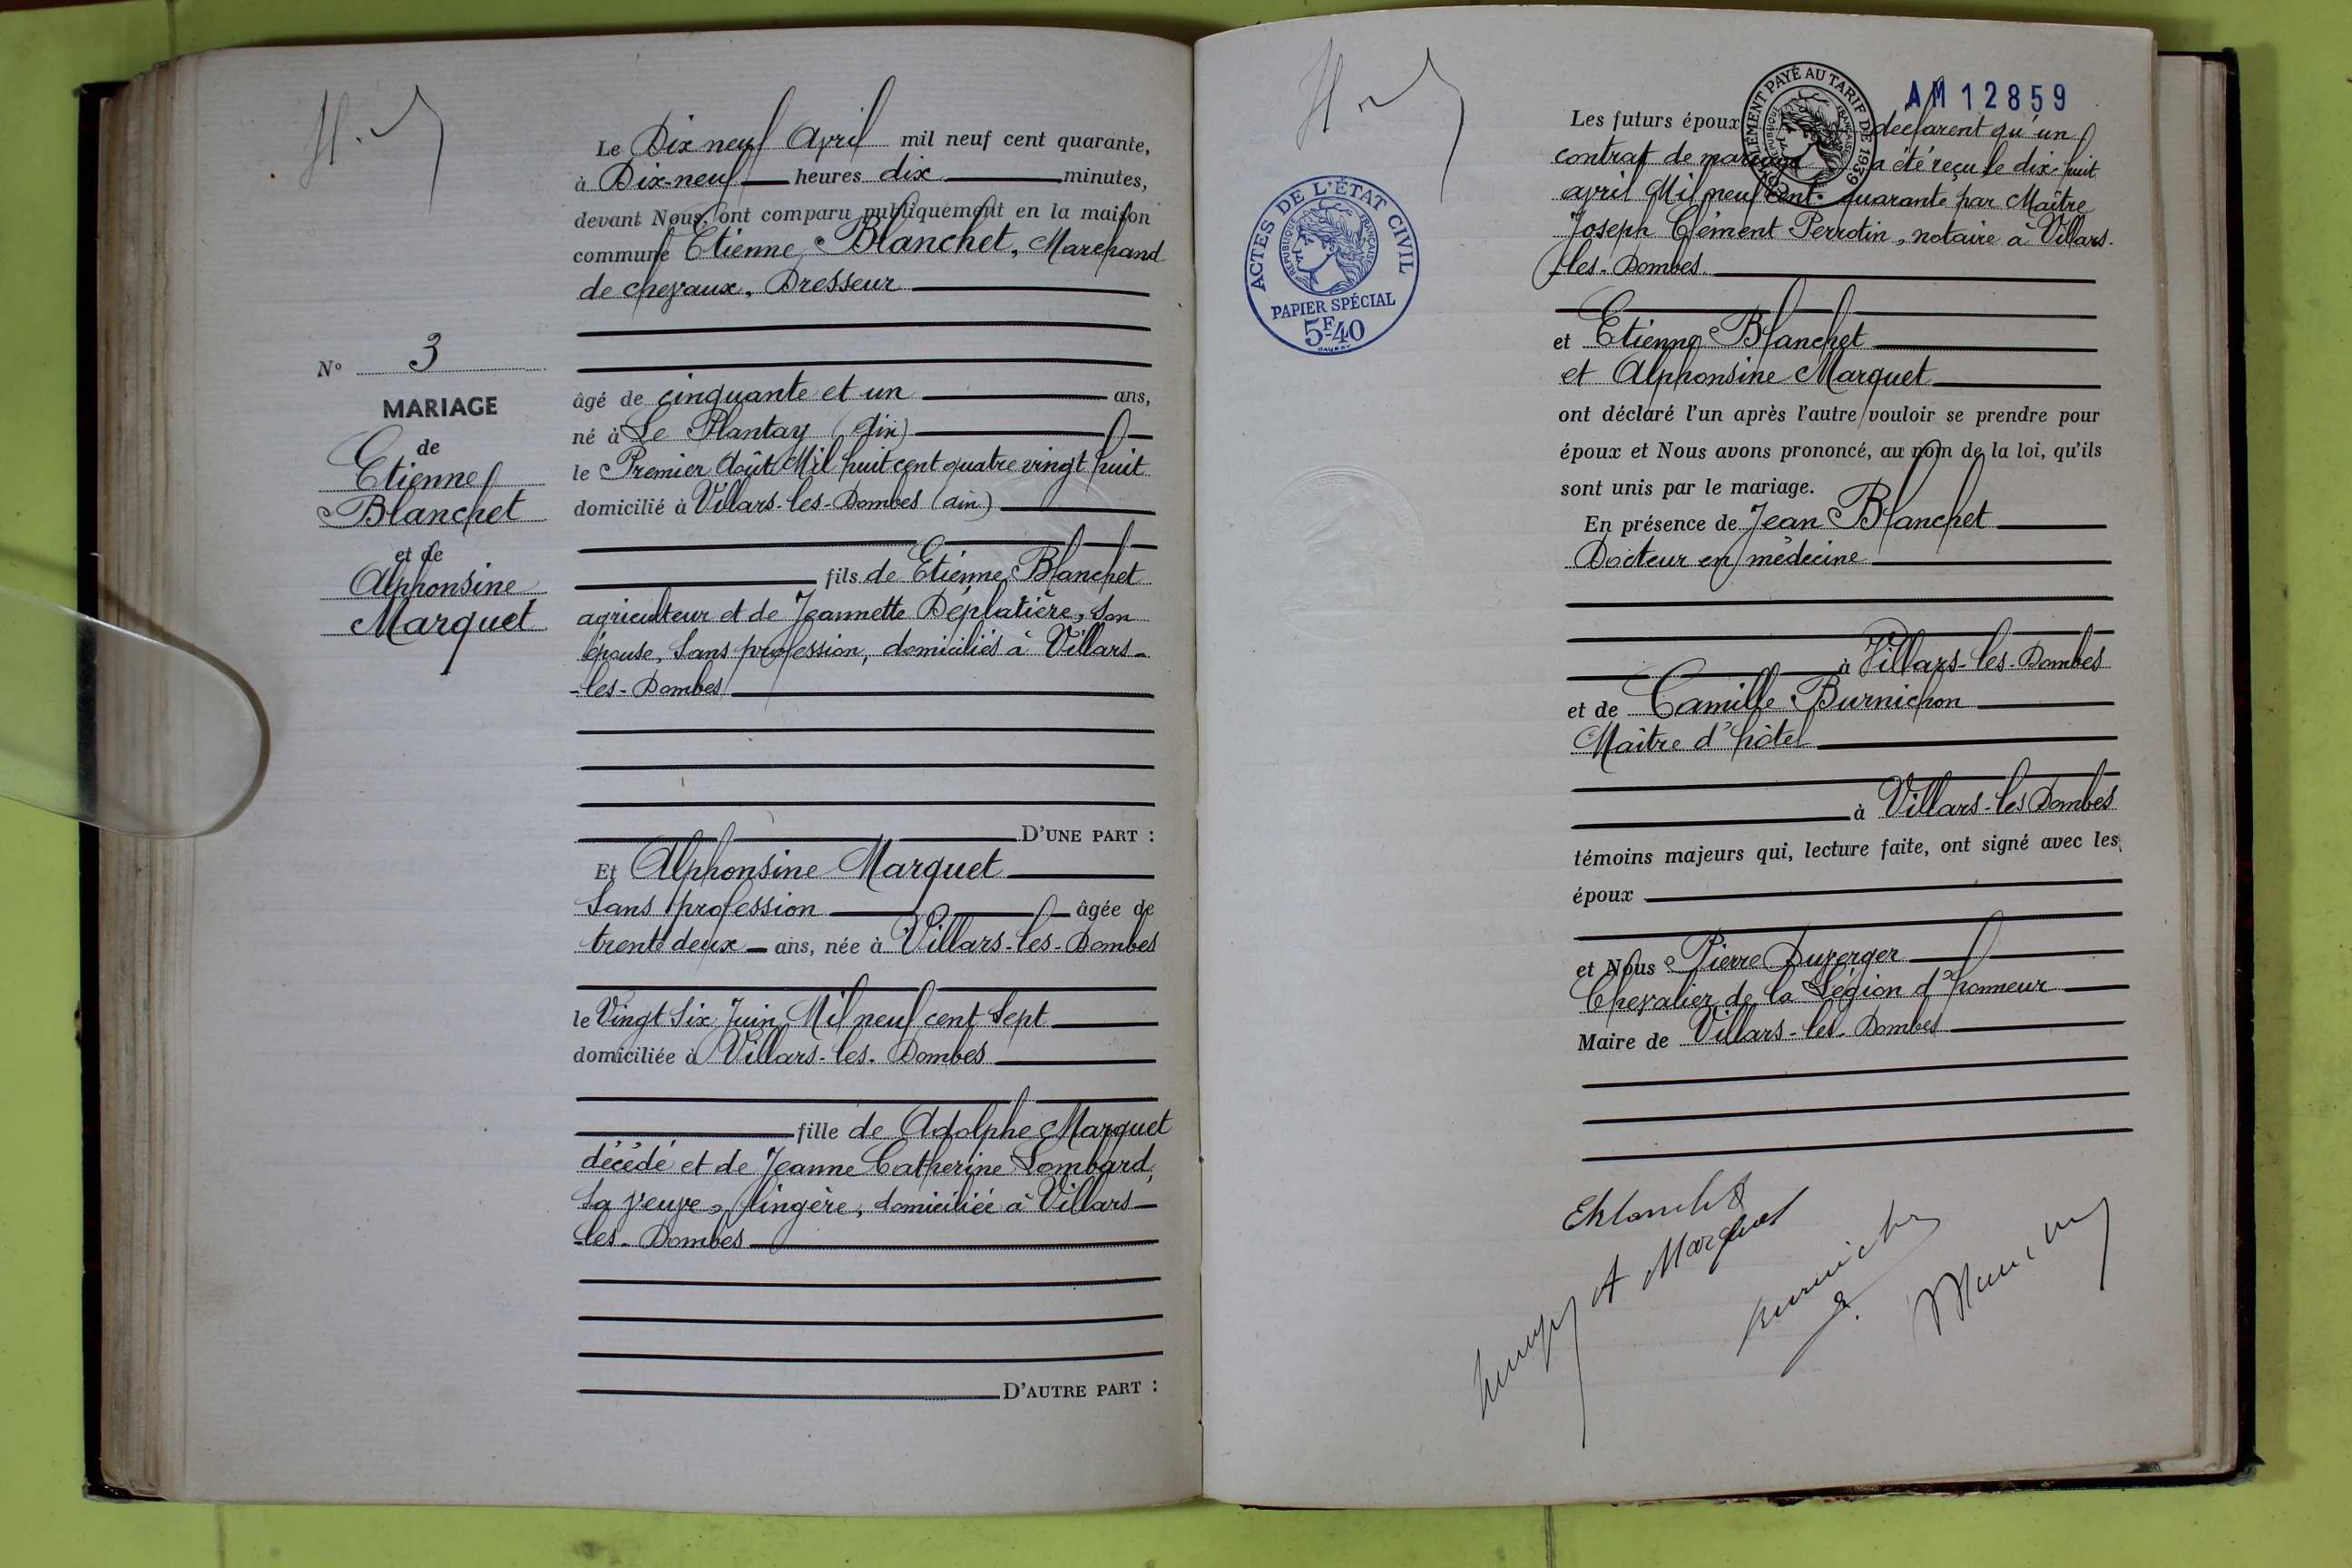 Le Dix neuf Avril mil neuf cent quarante,
à Dix-neuf heures dix minutes,
devant Nous, ont comparu publiquement en la maison
commune Etienne Blanchet, Marchand
de chevaux, Dresseur
N° 3
MARIAGE
de
Etienne
Blanchet
et de
Alphonsine
Marquet
âgé de cinquante et un ans,
né à Le Plantay (Ain)
le Premier Août Mil huit cent quatre vingt huit
domicilié à Villars-les-Dombes (ain)
fils de Etienne Blanchet
agriculteur et de Jeannette Déplatière, son
épouse, sans profession, domiciliés à Villars-
-les-Dombes
D'UNE PART :
Et Alphonsine Marquet
Sans profession âgée de
trente deux ans, née à Villars-les-Dombes
le Vingt Six Juin Mil neuf cent Sept
domiciliée à Villars-les-Dombes
fille de Adolphe Marquet
décédé et de Jeanne Catherine Lombard,
Sa veuve, lingère, domiciliée à Villars-
-les-Dombes
D'AUTRE PART :
AM 12859
COMPLÉMENT PAYÉ AU TARIF DE 1939
RÉPUBLIQUE FRANÇAISE
ACTES DE L'ÉTAT CIVIL
RÉPUBLIQUE FRANÇAISE
PAPIER SPÉCIAL
5F40
Les futurs époux déclarent qu'un
contrat de mariage a été reçu le dix-huit
avril Mil neuf cent quarante par Maître
Joseph Clément Perrotin, notaire à Villars-
-les-Dombes
et Etienne Blanchet
et Alphonsine Marquet
ont déclaré l'un après l'autre vouloir se prendre pour
époux et Nous avons prononcé, au nom de la loi, qu'ils
sont unis par le mariage.
En présence de Jean Blanchet
Docteur en médecine
à Villars-les-Dombes
et de Camille Burnichon
Maître d'hôtel
à Villars-les Dombes
témoins majeurs qui, lecture faite, ont signé avec les
époux
et Nous Pierre Duverger
Chevalier de la Légion d'honneur
Maire de Villars-les-Dombes
EBlanchet
A Marquet